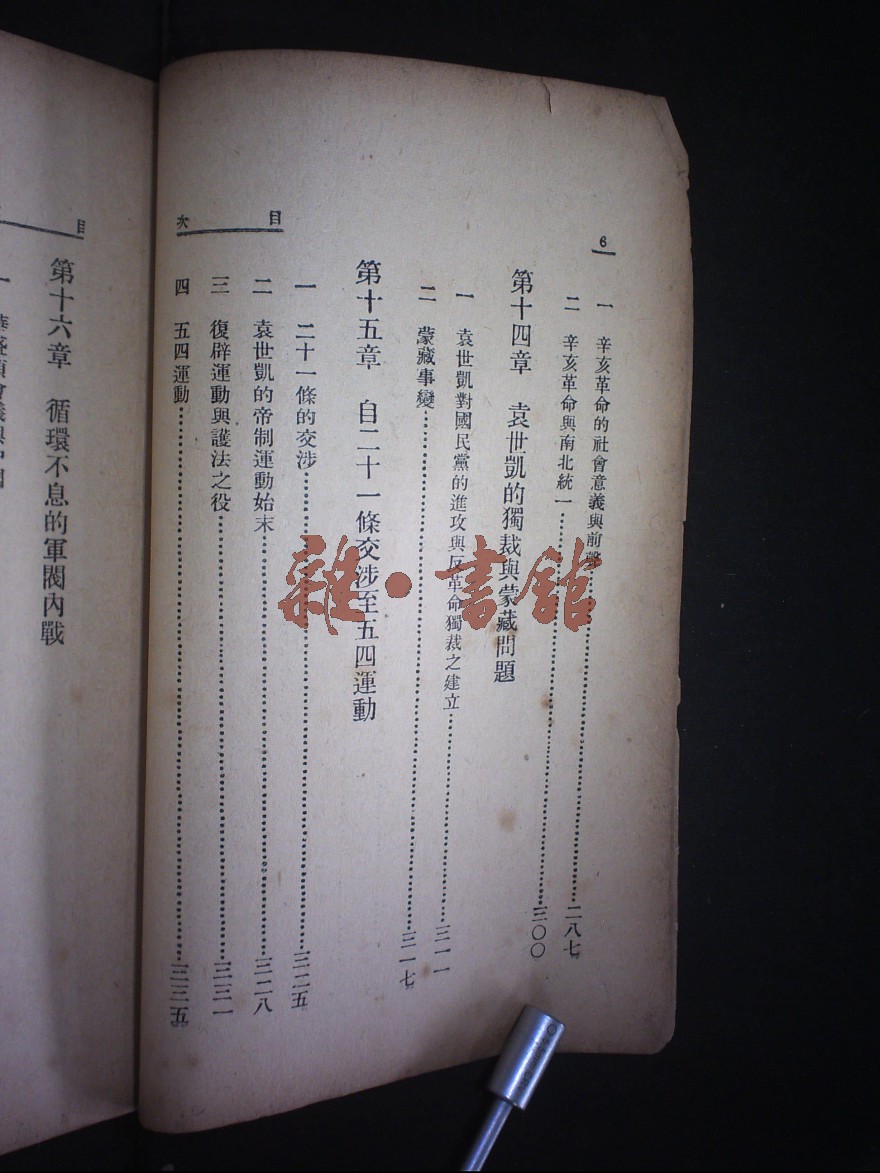 6
一 辛亥革命的社會意義與前聲……二八七
二 辛亥革命與南北統一……三〇〇
第十四章 袁世凱的獨裁與蒙藏問題
一 袁世凱對國民黨的進攻與反革命獨裁之建立……三一一
二 蒙藏事變……三一七
第十五章 自二十一條交涉至五四運動
目次
一 二十一條的交涉……三二五
二 袁世凱的帝制運動始末……三二八
三 復辟運動與護法之役……三三一
四 五四運動……三三五
目
第十六章 循環不息的軍閥內戰
雜·書館